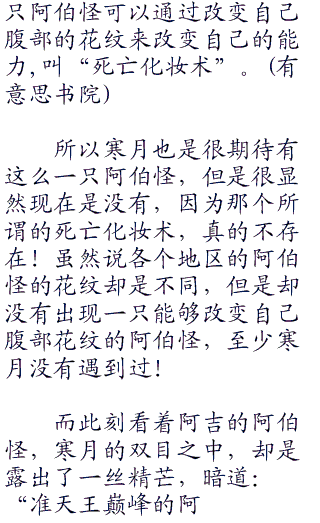 只阿伯怪可以通过改变自己
腹部的花纹来改变自己的能
力,叫“死亡化妆术”。(有
意思书院)
所以寒月也是很期待有
这么一只阿伯怪，但是很显
然现在是没有，因为那个所
谓的死亡化妆术，真的不存
在！虽然说各个地区的阿伯
怪的花纹却是不同，但是却
没有出现一只能够改变自己
腹部花纹的阿伯怪，至少寒
月没有遇到过！
而此刻看着阿吉的阿伯
怪，寒月的双目之中，却是
露出了一丝精芒，暗道：
“准天王巅峰的阿